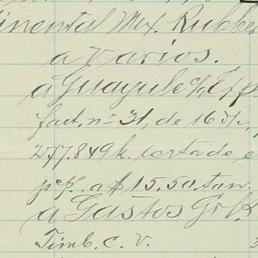 tinental Mex. Rubber
a varios.
a Guayule c/
fact, nº 31, de 1631,
277.849 k. cortado, e
pº/. a $ 15.50, ton.
a Gastos Grl
Timb. C. V.